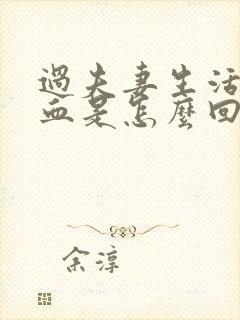 過夫妻生活
血是怎麼回
余淳